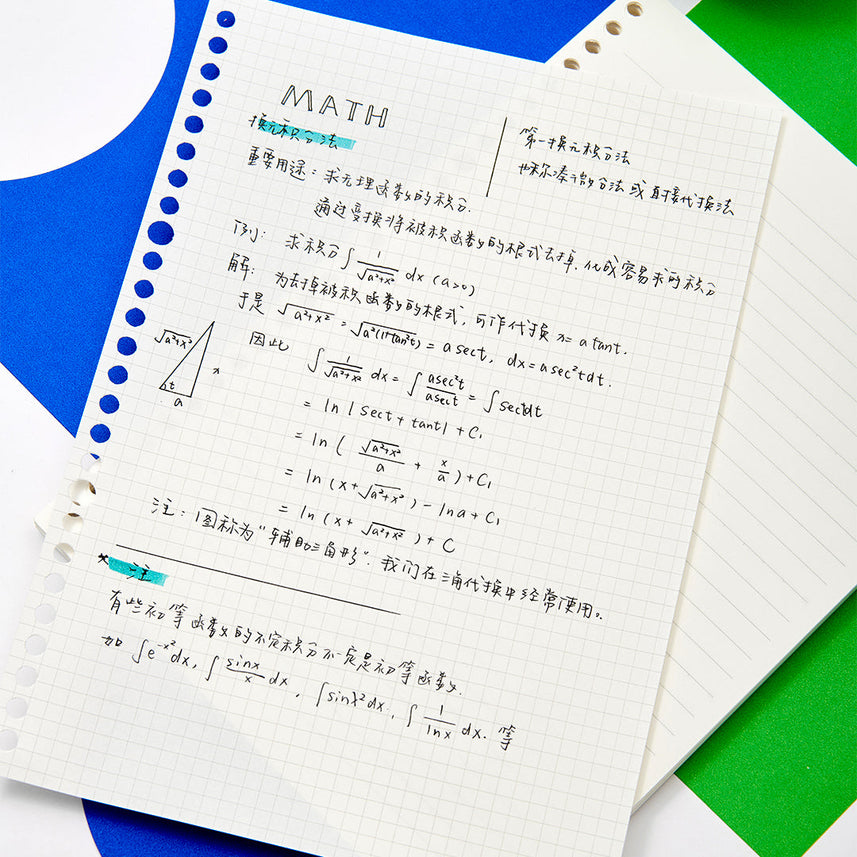 MATH
换元积分法
第一换元积分法
也称凑微分法或直接代换法
重要用途：求无理函数的积分.
通过变换将被积函数的根式去掉，化成容易求的积分
例：求积分∫ 1/√(a²+x²) dx (a>0)
解：为去掉被积函数的根式，可作代换 x = a tant.
于是 √(a²+x²) = √(a²(1+tan²t)) = a sect, dx = a sec²t dt.
因此 ∫ 1/√(a²+x²) dx = ∫ asec²t/asect = ∫ sectdt
= ln|sect + tant| + C₁
= ln( √(a²+x²)/a + x/a ) + C₁
= ln(x + √(a²+x²)) - lna + C₁
= ln(x + √(a²+x²)) + C
√(a²+x²)
x
t
a
注：1图称为“辅助三角形”. 我们在三角代换中经常使用。
* 注
有些初等函数的不定积分不一定是初等函数.
如 ∫e^(-x²)dx, ∫ sinx/x dx, ∫sinx²dx, ∫ 1/lnx dx. 等